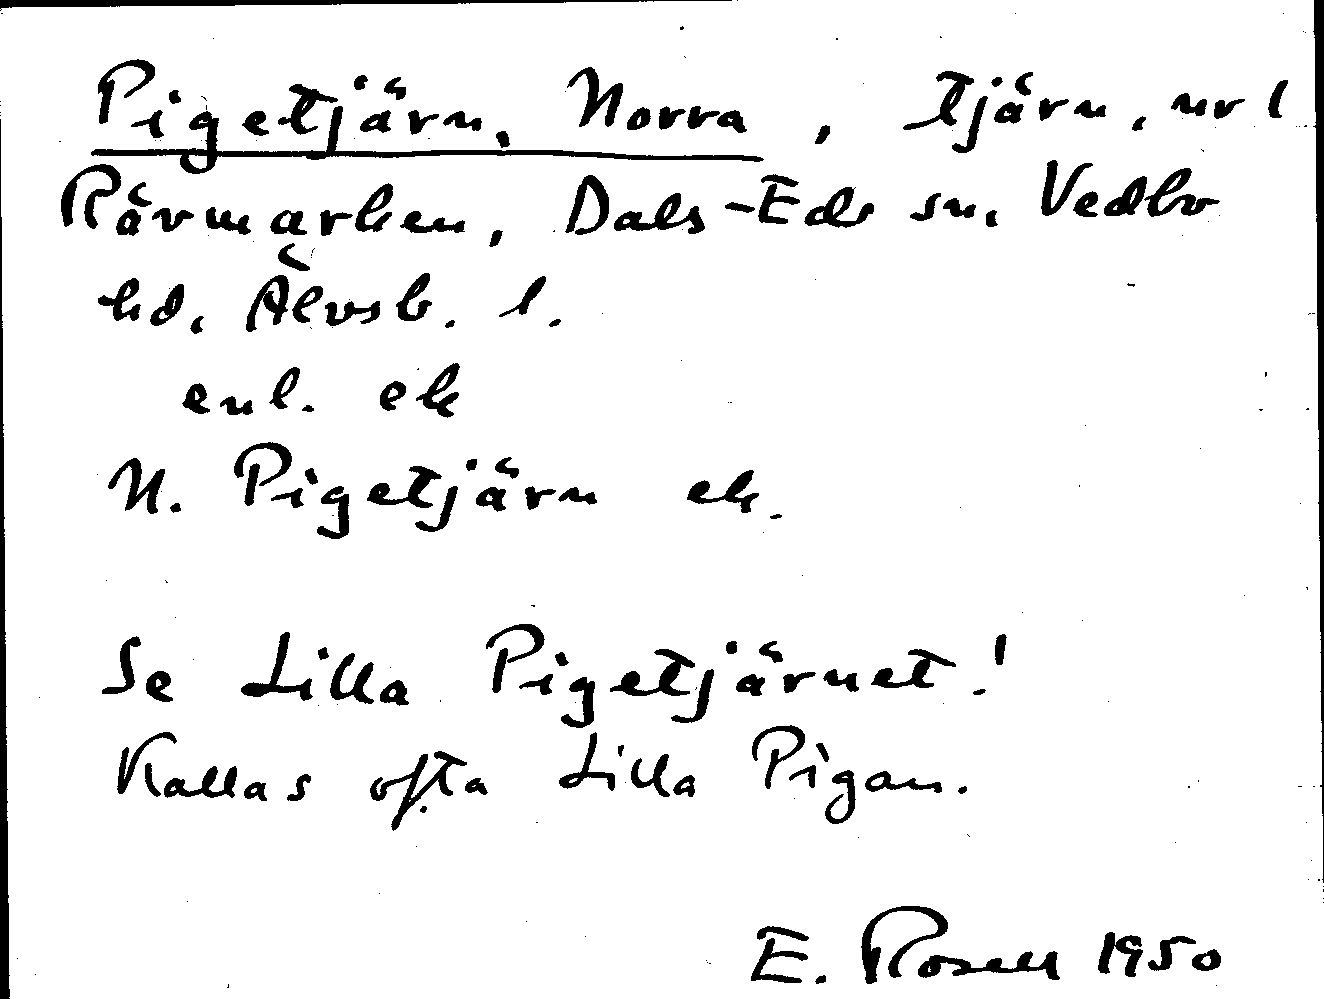 Pigetjärn, Norra, tjärn, nr 1
Rävmarken, Dals-Eds sn, Vedbo
hd, Älvsb. l.
enl. ek
N. Pigetjärn ek.
Se Lilla Pigetjärnet!
Kallas ofta Lilla Pigan.
E. Rosell 1950